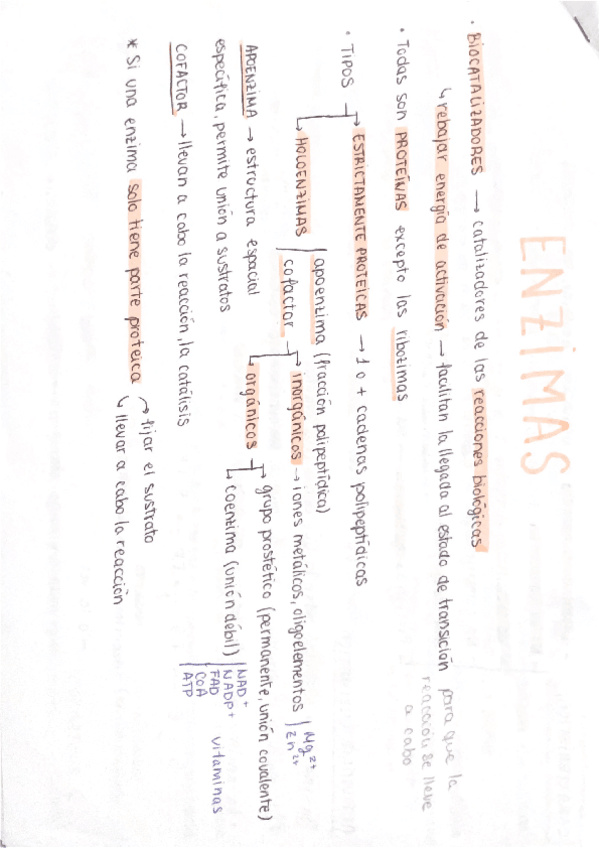 ENZIMAS
· BIOCATALIZADORES → catalizadores de las reacciones biológicas
↳ rebajar energía de activación → facilitan la llegada al estado de transición para que la
reacción se lleve
a cabo
· Todas son PROTEÍNAS excepto las ribozimas
· TIPOS → ESTRICTAMENTE PROTEICAS → 1 o + cadenas polipeptídicas
↳ HOLOENZIMAS | apoenzima (fracción polipeptídica)
cofactor → inorgánicos → iones metálicos, oligoelementos | Mg²⁺
Zn²⁺
↳ orgánicos → grupo prostético (permanente, unión covalente)
↳ coenzima (unión débil) | NAD⁺
NADP⁺
FAD
CoA
ATP
vitaminas
APOENZIMA → estructura espacial
específica, permite unión a sustratos
COFACTOR → llevan a cabo la reacción, la catálisis
* Si una enzima solo tiene parte proteica → fijar el sustrato
↳ llevar a cabo la reacción